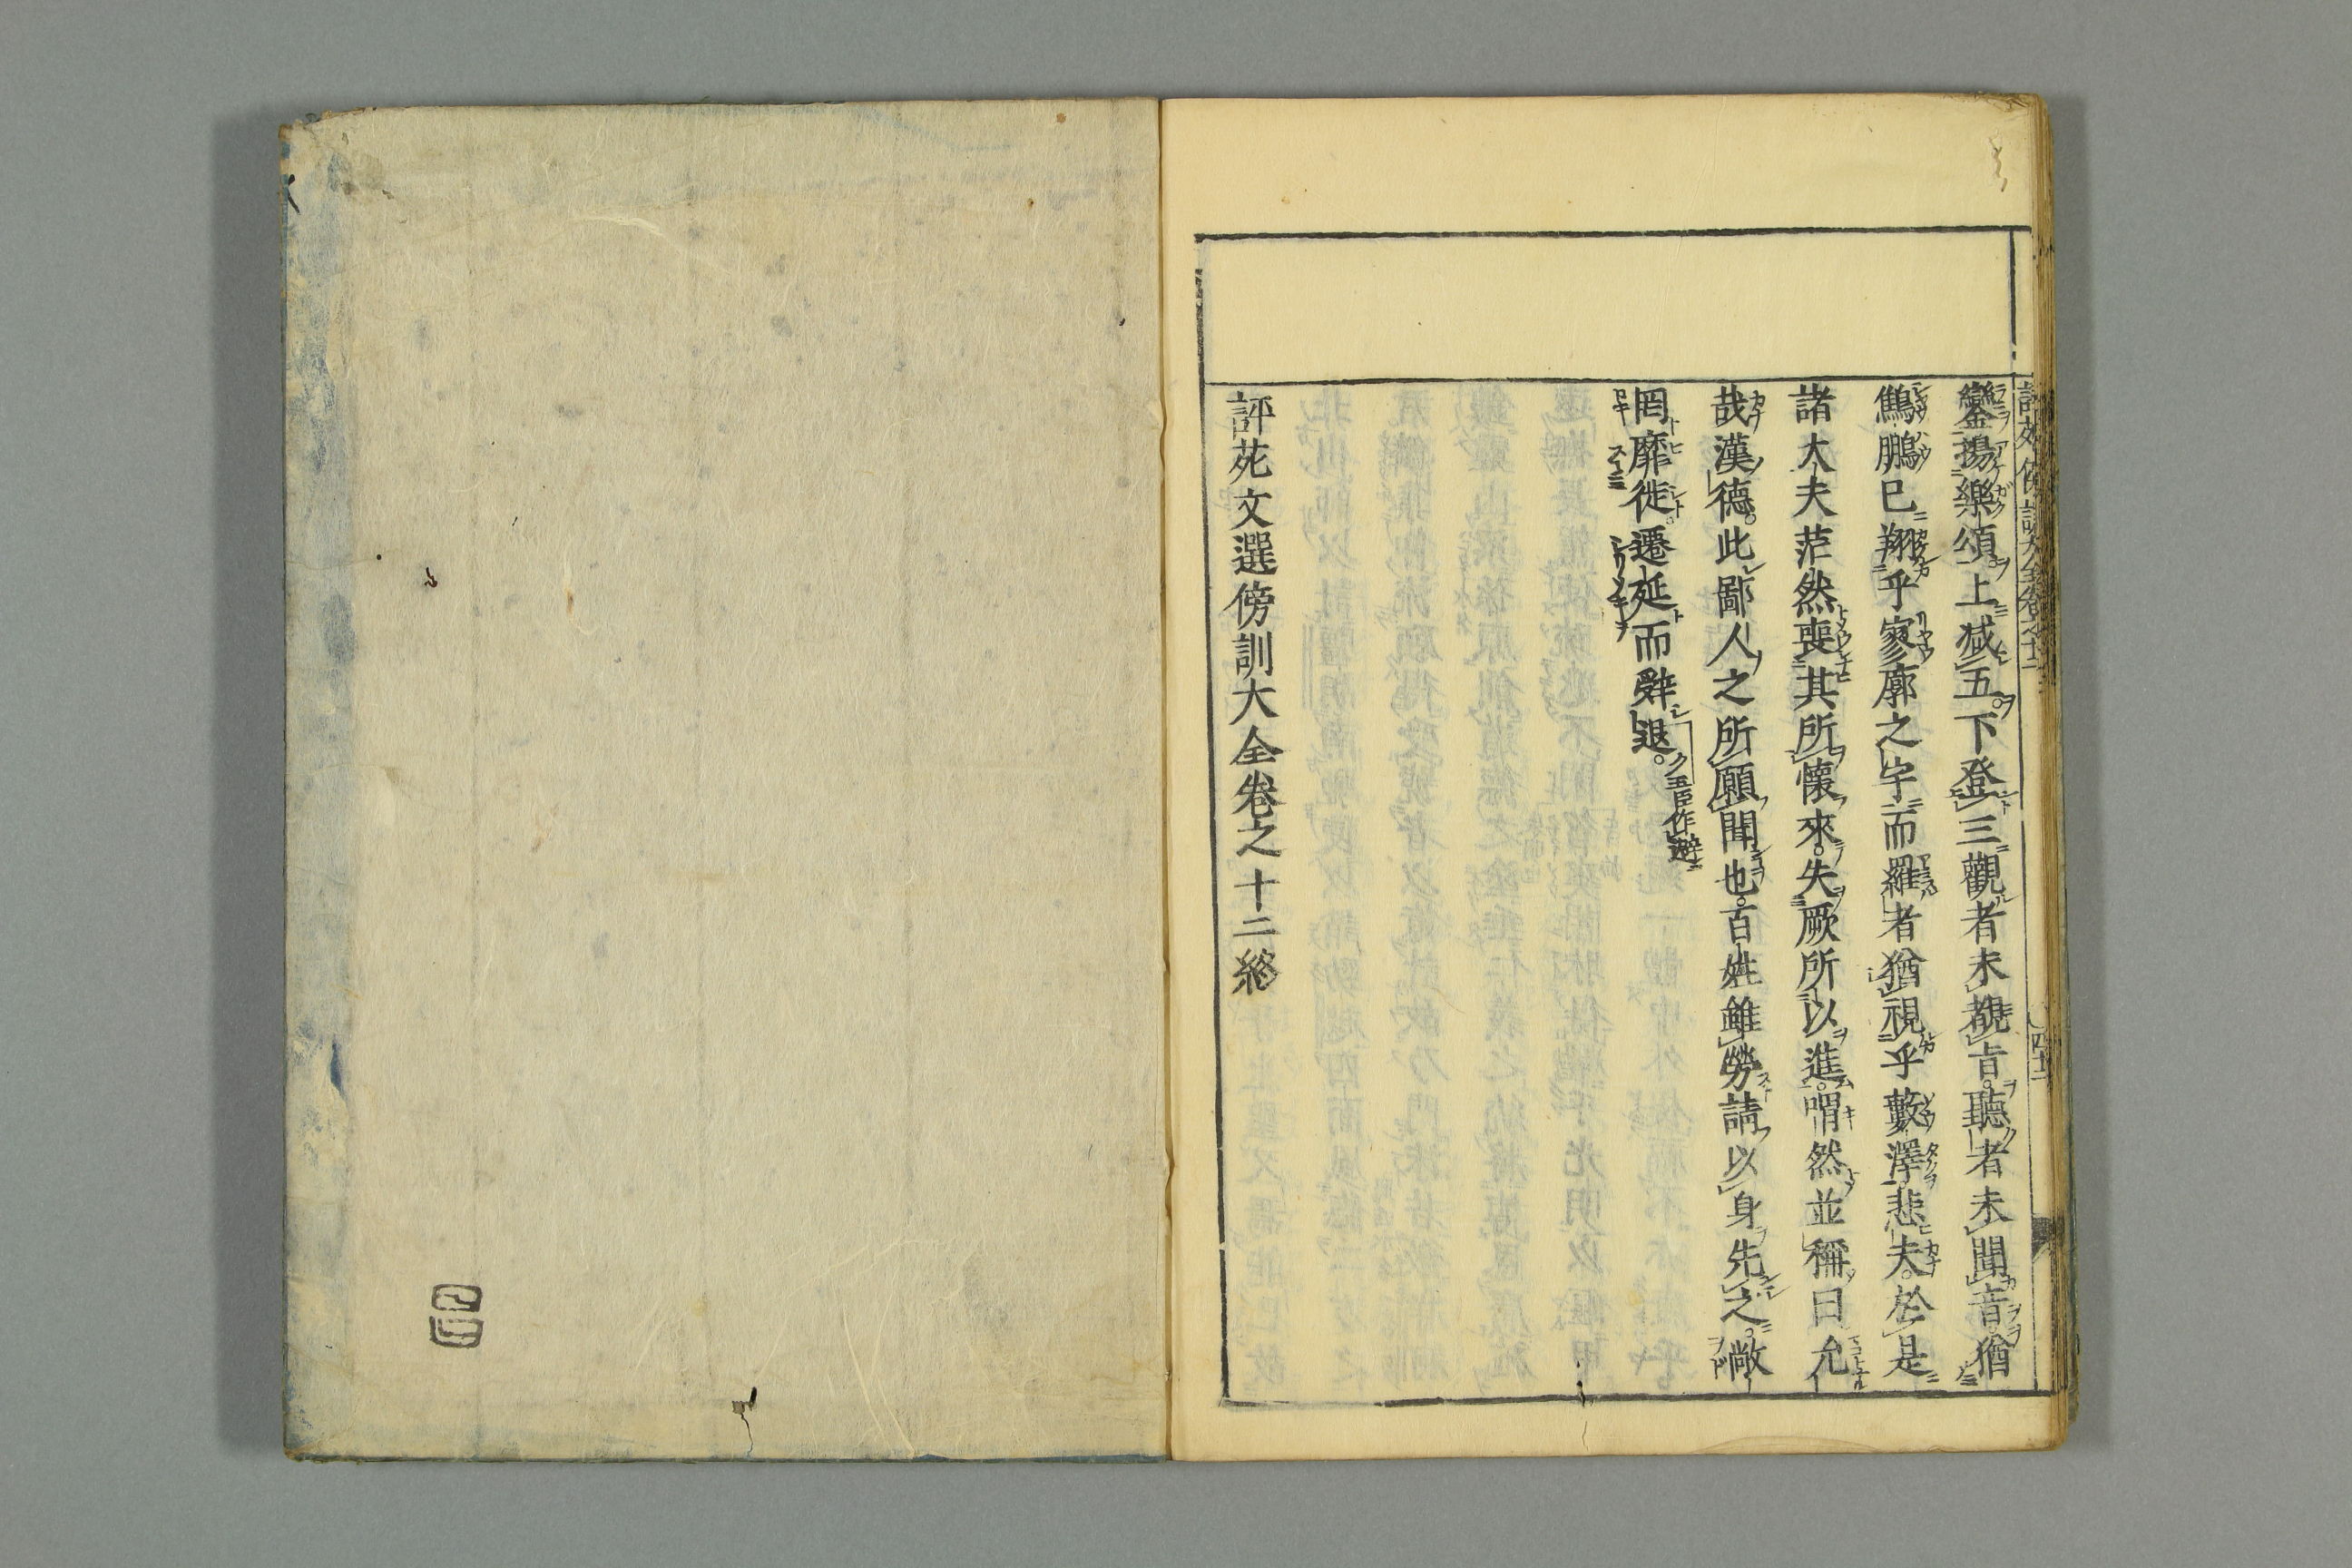 鑾揚樂頌上減五下登三觀者未覩旨聽者未聞音猶
鷦鵬已翔乎寥廓之宇而羅者猶視乎藪澤悲夫於是
諸大夫茫然喪其所懷來失厥所以進喟然並稱曰允
哉漢德此鄙人之所願聞也百姓雖勞請以身先之敞
罔靡徙遷延而辭退
五臣作避
評苑文選傍訓大全卷之十二終